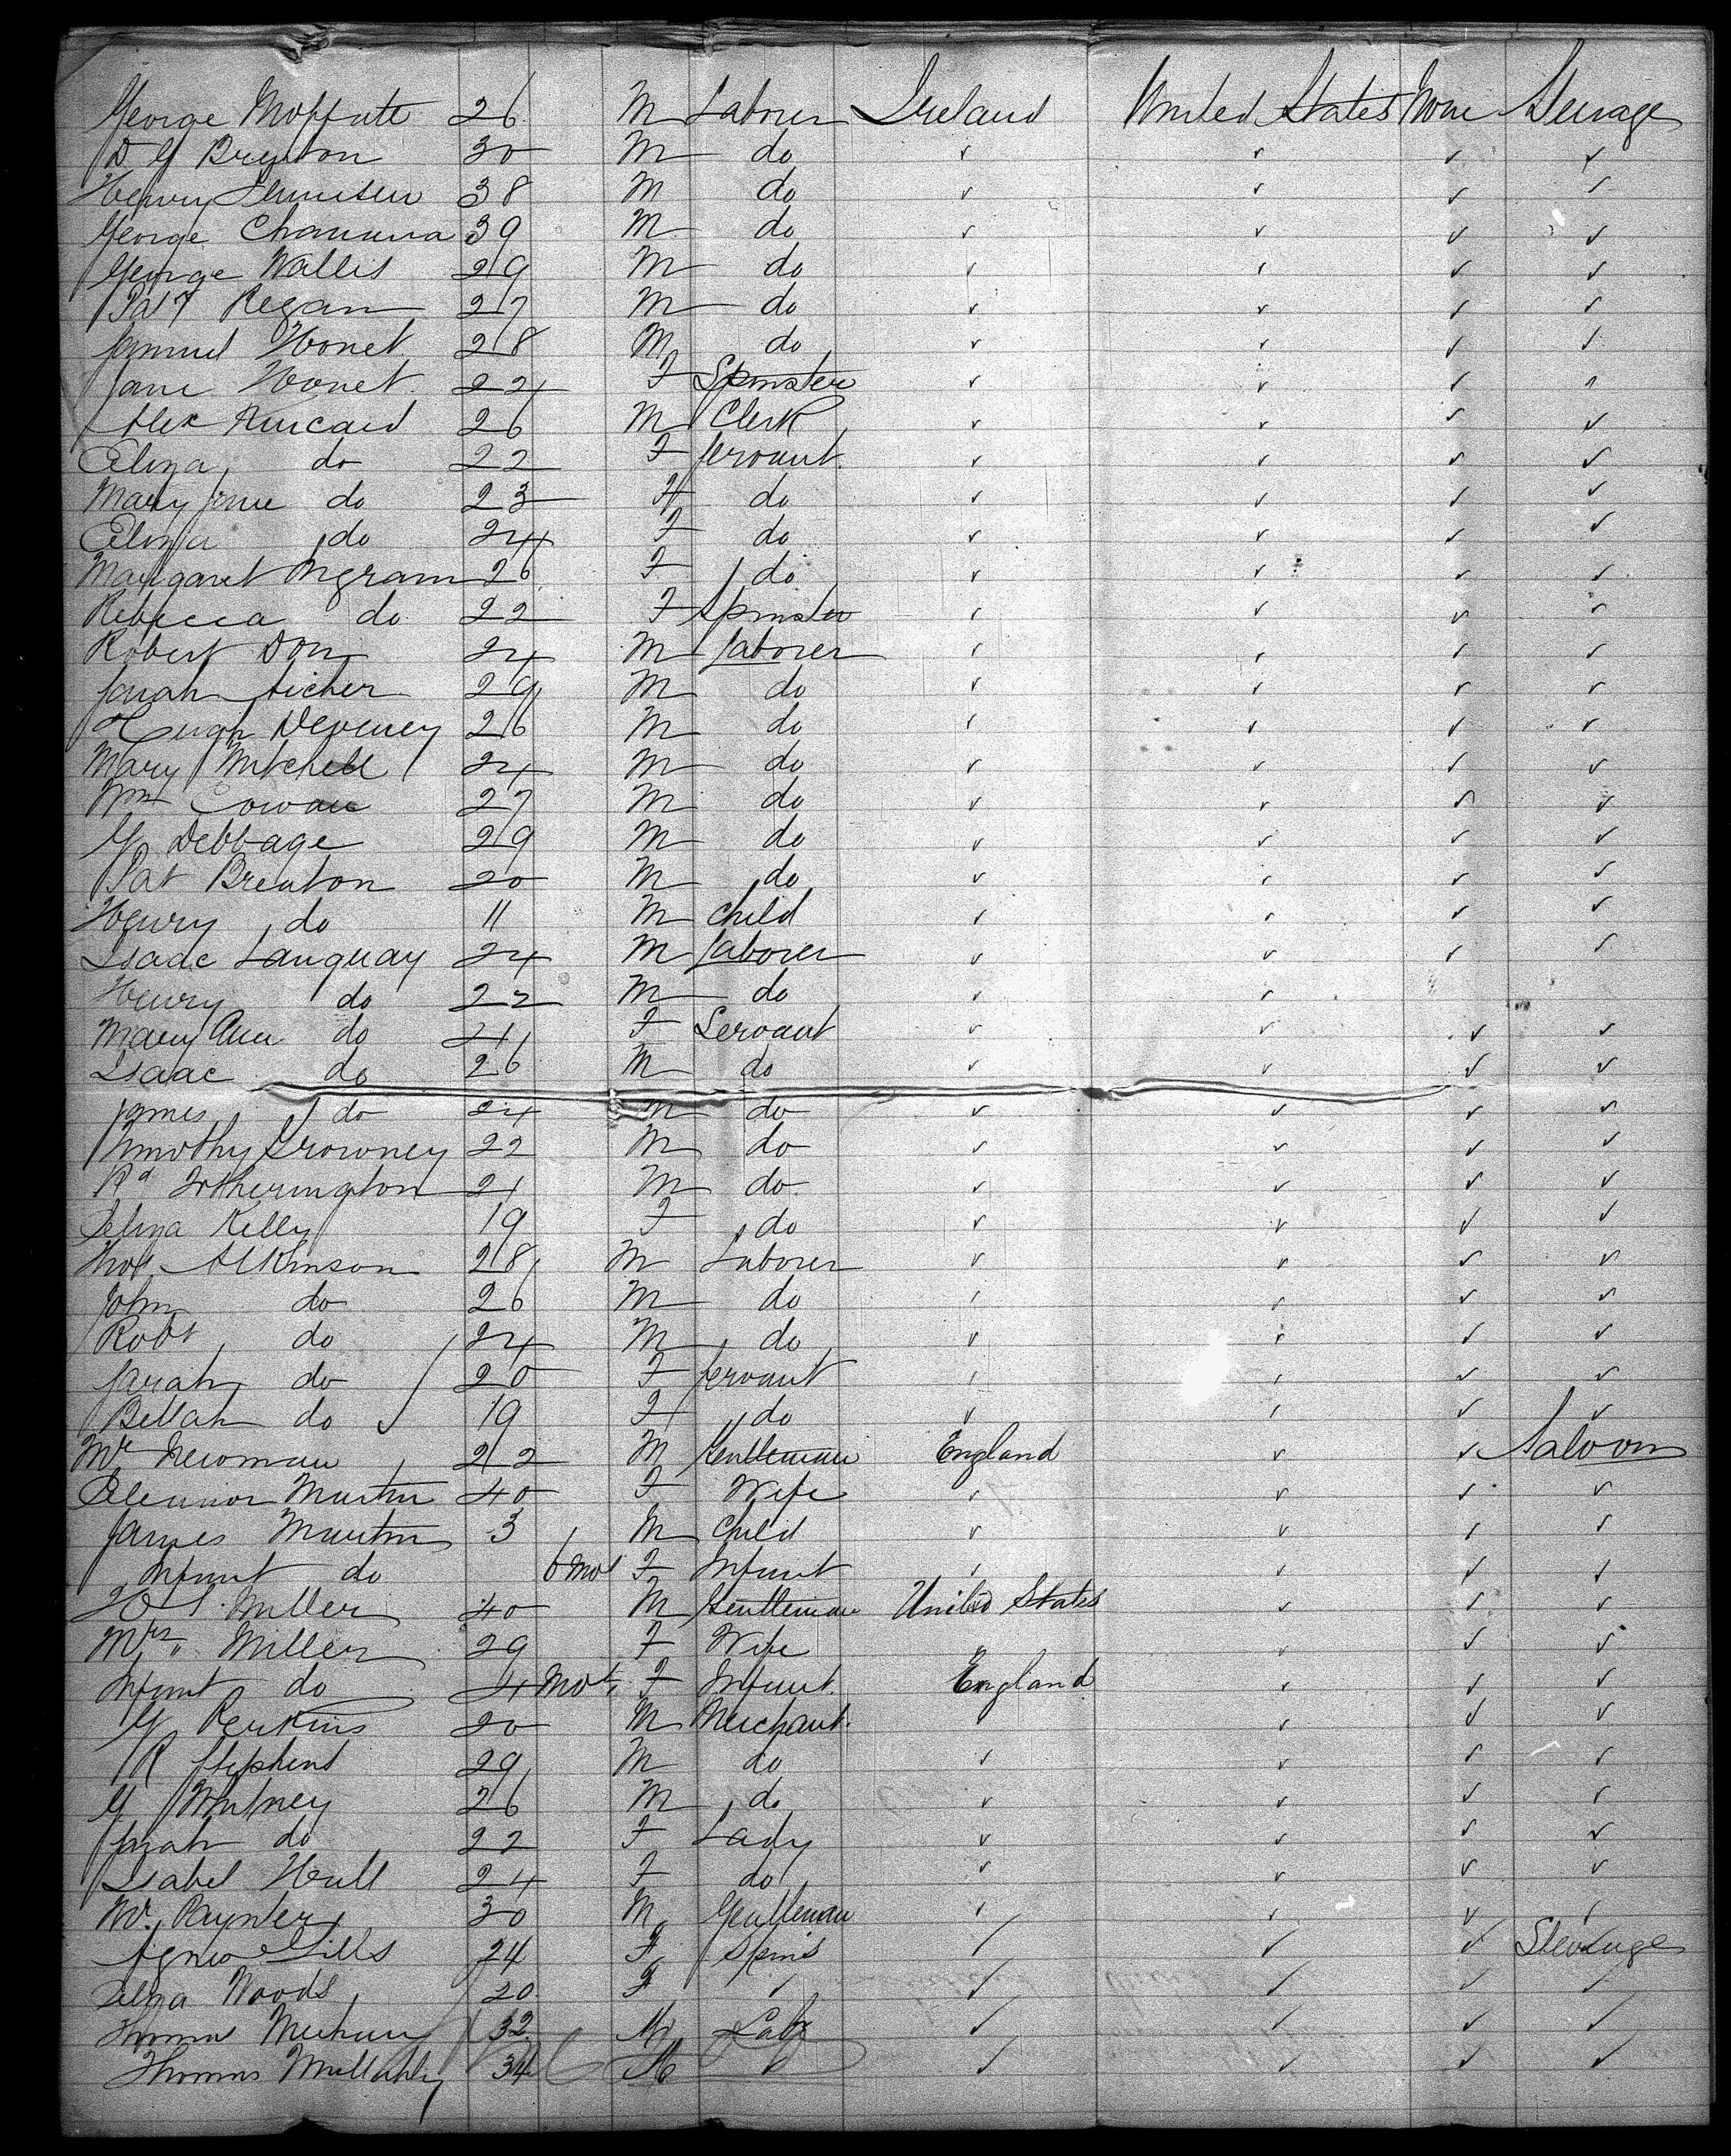 George Moffutt 26 M Laborer Ireland United States None Steerage
D G Breyton 30 M do ✓ ✓ ✓ ✓
Henry 38 M do ✓ ✓ ✓ ✓
George 39 M do ✓ ✓ ✓ ✓
George Wallis 29 M do ✓ ✓ ✓ ✓
Pat Regan 27 M do ✓ ✓ ✓ ✓
Samuel Honet 28 M do ✓ ✓ ✓ ✓
Jane Honet 24 F Spinster ✓ ✓ ✓ ✓
Alex Kincaid 26 M Clerk ✓ ✓ ✓ ✓
Eliza do 22 F Servant ✓ ✓ ✓ ✓
Mary Jane do 23 F do ✓ ✓ ✓ ✓
Eliza do 24 F do ✓ ✓ ✓ ✓
Margaret Ingram 26 F do ✓ ✓ ✓ ✓
Rebecca do 22 F Spinster ✓ ✓ ✓ ✓
Robert Don 24 M Laborer ✓ ✓ ✓ ✓
Sarah Archer 29 M do ✓ ✓ ✓ ✓
Hugh Deveney 26 M do ✓ ✓ ✓ ✓
Mary Mitchell 24 M do ✓ ✓ ✓ ✓
Wm Cowan 27 M do ✓ ✓ ✓ ✓
G Debbage 29 M do ✓ ✓ ✓ ✓
Pat Breaton 20 M do ✓ ✓ ✓ ✓
Henry do 11 M Child ✓ ✓ ✓ ✓
Isaac Lanquay 24 M Laborer ✓ ✓ ✓ ✓
Henry do 22 M do ✓ ✓
Mary Ann do 21 F Servant ✓ ✓ ✓ ✓
Isaac do 26 M do ✓ ✓ ✓ ✓
James do 24 M do ✓ ✓ ✓ ✓
Timothy Growney 22 M do ✓ ✓ ✓ ✓
Rd Fetherington 21 M do ✓ ✓ ✓ ✓
Eliza Kelly 19 F do ✓ ✓ ✓ ✓
Thos Atkinson 28 M Laborer ✓ ✓ ✓ ✓
John do 26 M do ✓ ✓ ✓ ✓
Robt do 24 M do ✓ ✓ ✓ ✓
Sarah do 20 F Servant ✓ ✓ ✓ ✓
Bellah do 19 F do ✓ ✓ ✓ ✓
Mr Newman 22 M Gentleman England ✓ ✓ Saloon
Eleanor Martin 40 F Wife ✓ ✓ ✓ ✓
James Martin 3 M Child ✓ ✓ ✓ ✓
Infant do 6 mos F Infant ✓ ✓ ✓ ✓
H S Miller 40 M Gentleman United States ✓ ✓ ✓
Mrs " Miller 29 F Wife ✓ ✓ ✓
Infant do 4 Mos F Infant England ✓ ✓ ✓
G Perkins 20 M Merchant ✓ ✓ ✓ ✓
R Stephens 29 M do ✓ ✓ ✓ ✓
G Whitney 26 M do ✓ ✓ ✓ ✓
Sarah do 22 F Lady ✓ ✓ ✓ ✓
Isabel Hull 24 F do ✓ ✓ ✓ ✓
Mr. Paynter 30 M Gentleman ✓ ✓ ✓ ✓
Agnes Gills 24 F Spins ✓ ✓ ✓ Steerage
Eliza Woods 20 F ✓ ✓ ✓ ✓ ✓
Thomas 32 M Labr ✓ ✓ ✓ ✓
Thomas 34 M ✓ ✓ ✓ ✓ ✓